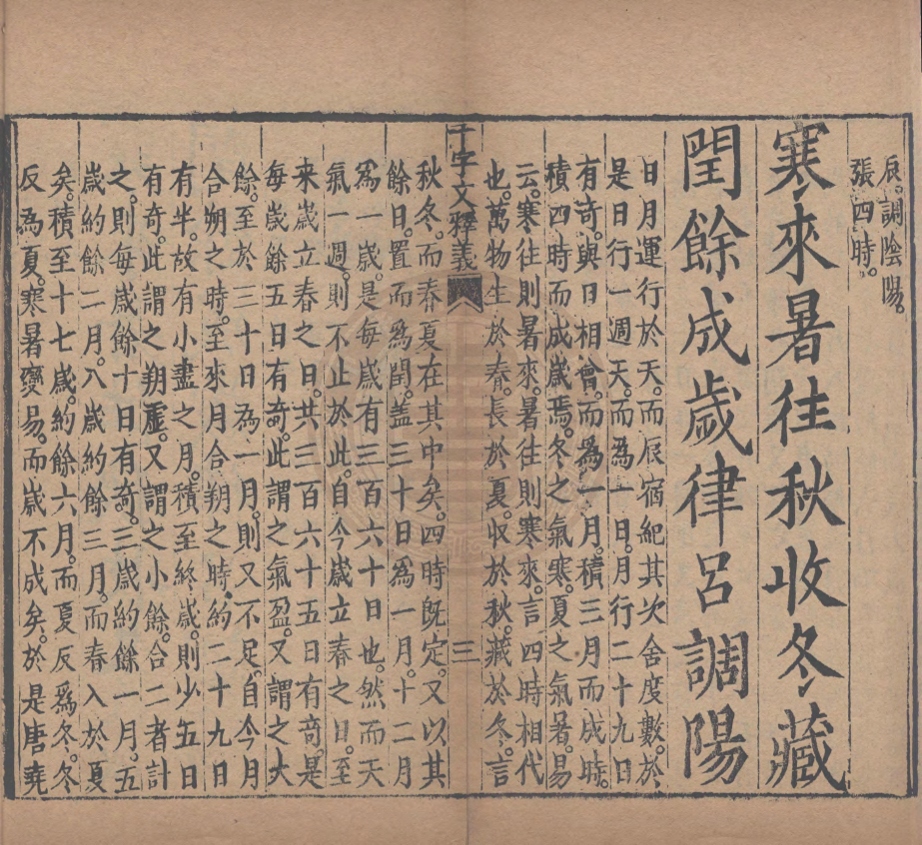 辰。調陰陽。
張四時。
寒來暑往秋收冬藏
閏餘成歲律呂調陽
日月運行於天。而辰宿紀其次舍度數。於
是日行一週天。而為一日。月行二十九日
有奇。與日相會。而為一月。積三月而成時。
積四時而成歲焉。冬之氣寒。夏之氣暑。易
云。寒往則暑來。暑往則寒來。言四時相代
也。萬物生於春。長於夏。收於秋。藏於冬。言
千字文釋義
三
秋冬。而春夏在其中矣。四時既定。又以其
餘日。置而爲閏。盖三十日爲一月。十二月
爲一歲。是每歲有三百六十日也。然而天
氣一週。則不止於此。自今歲立春之日。至
来歲立春之日。共三百六十五日有竒。是
每歲餘五日有奇。此謂之氣盈。又謂之大
餘。至於三十日為一月。則又不足。自今月
合朔之時。至來月合朔之時。約二十九日
有半。故有小盡之月。積至終歲。則少五日
有奇。此謂之朔虛。又謂之小餘。合二者計
之。則每歲餘十日有奇。三歲約餘一月。五
歲約餘二月。八歲約餘三月。而春入於夏
矣。積至十七歲。約餘六月。而夏反爲冬。冬
反為夏。寒暑變易。而歲不成矣。於是唐堯